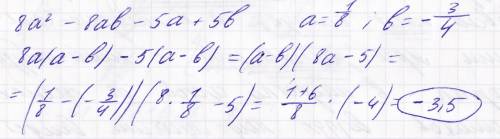 8a² - 8ab - 5a + 5b a = 1/8 ; b = -3/4
8a(a-b) - 5(a-b) = (a-b)(8a-5) =
= (1/8 - (-3/4))(8 · 1/8 - 5) = (1+6)/8 · (-4) = -3,5